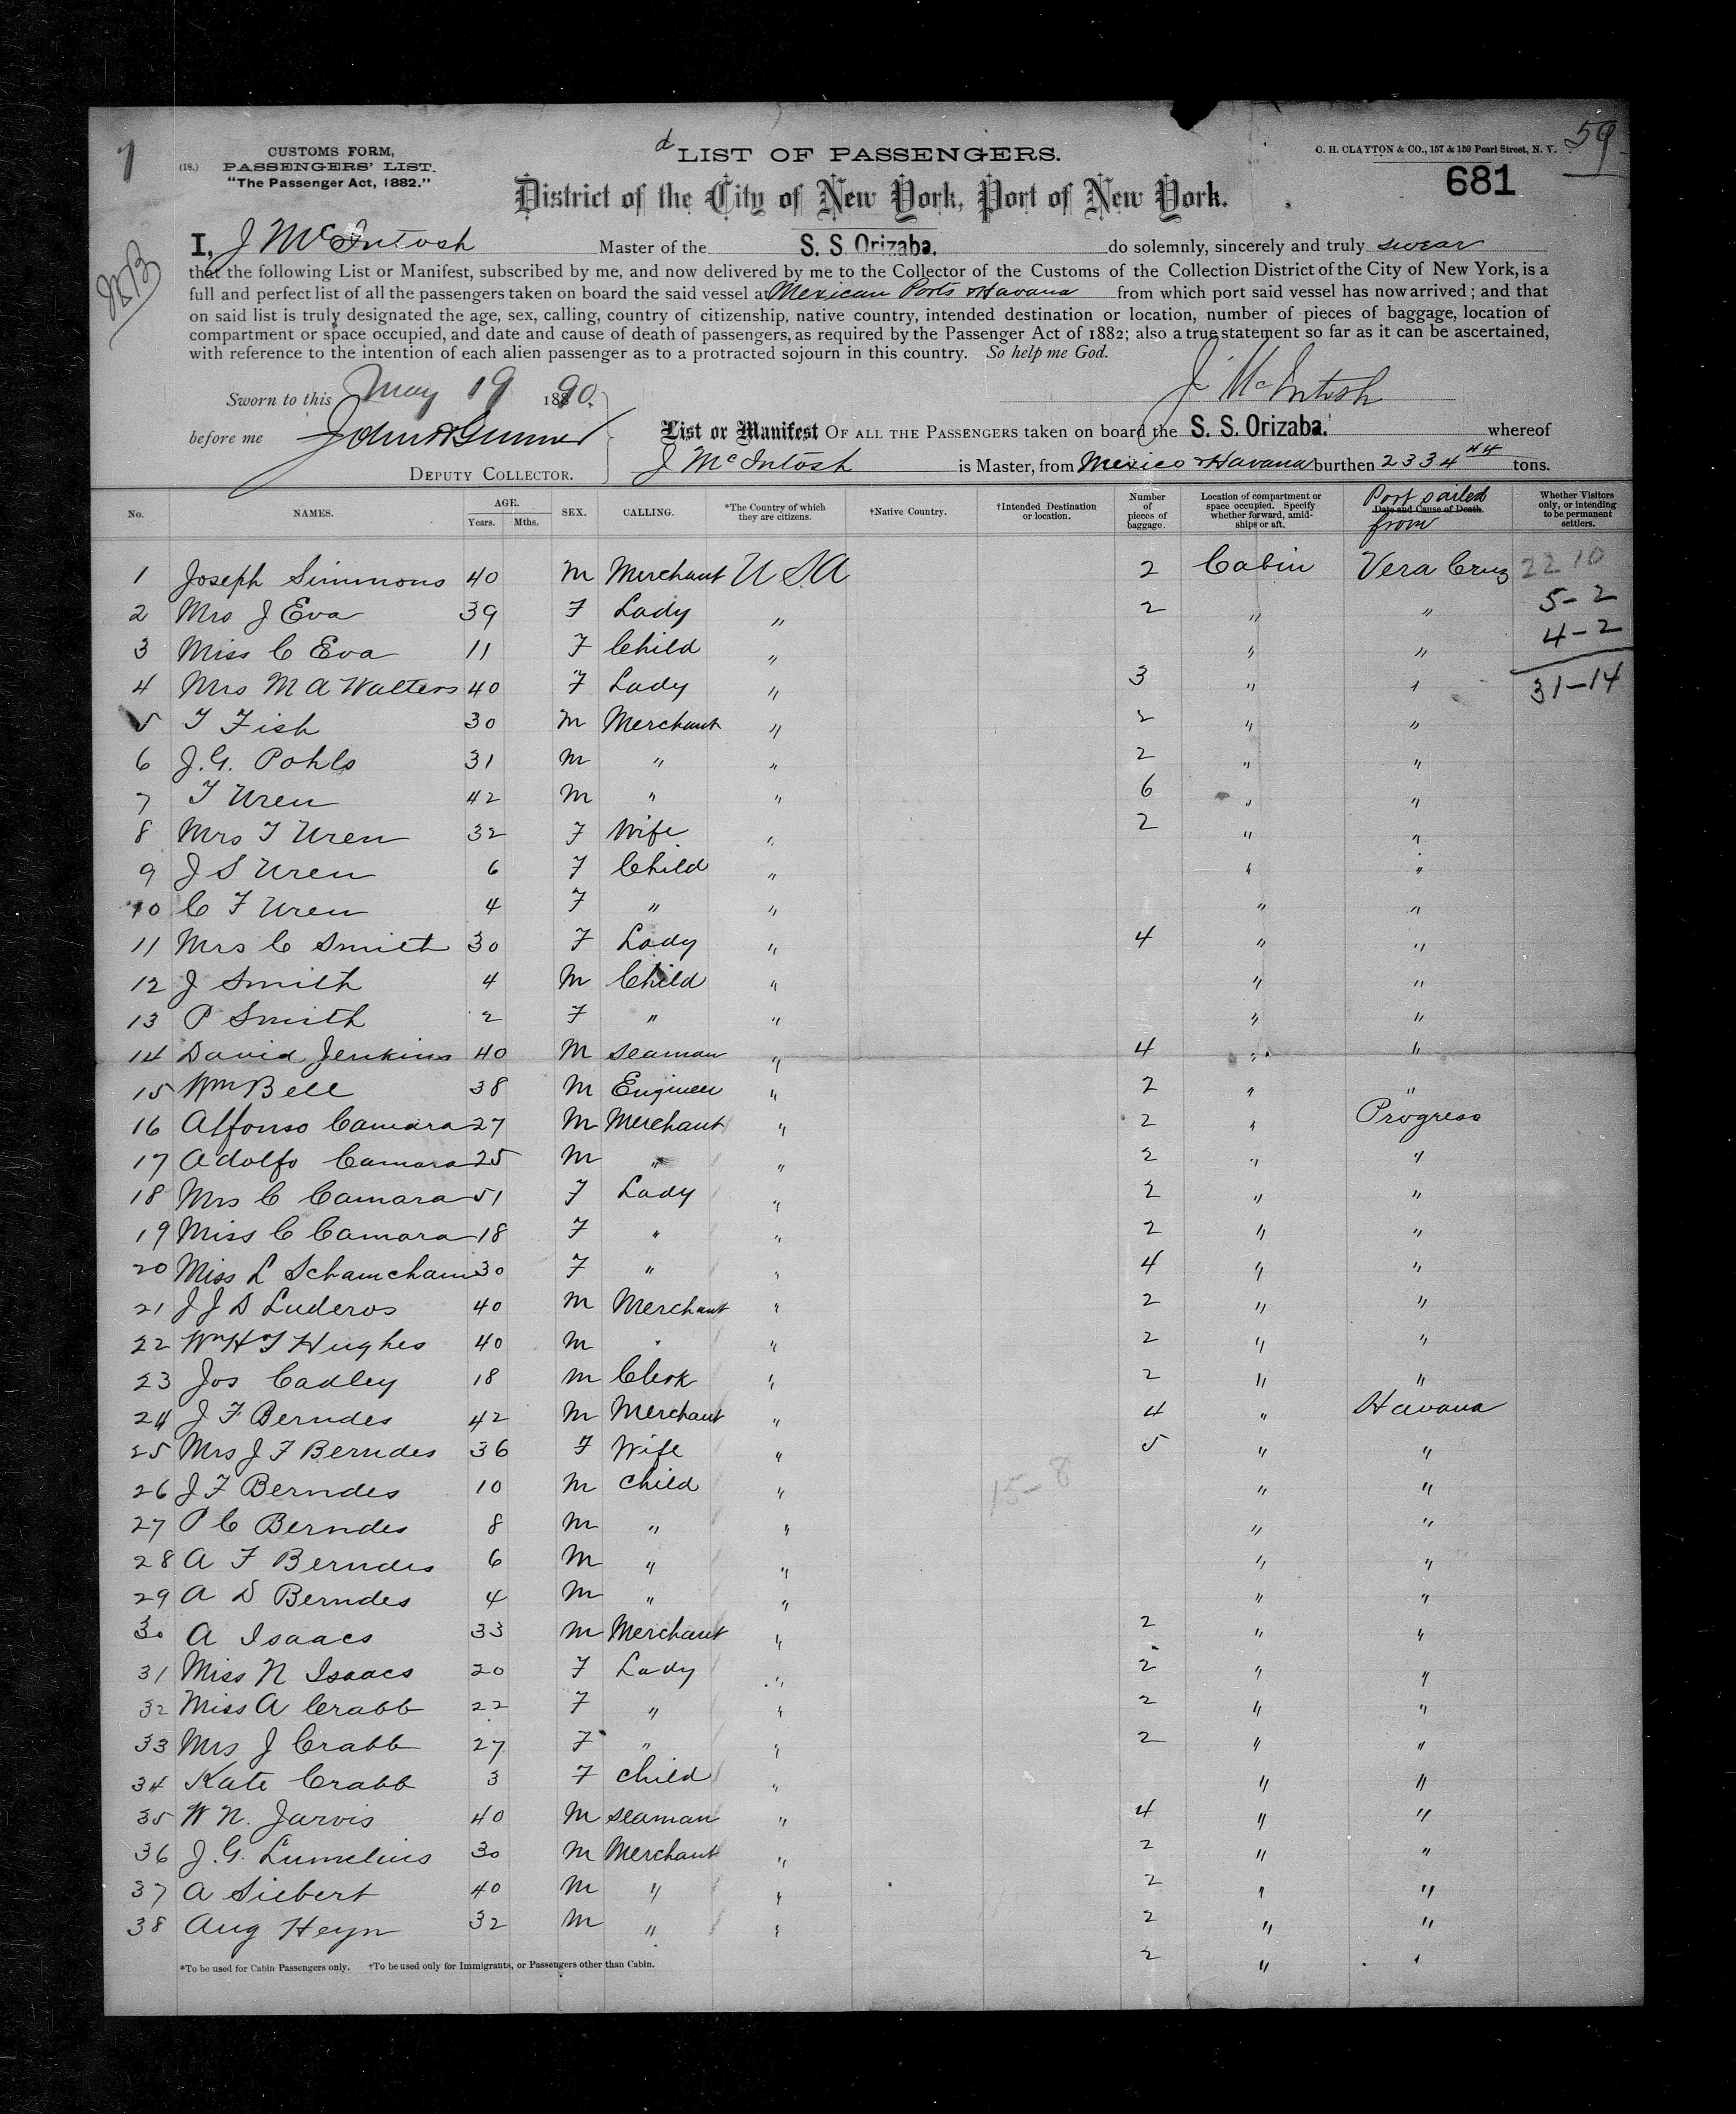 1
(18.)
CUSTOMS FORM,
PASSENGERS' LIST.
"The Passenger Act, 1882."
LIST OF PASSENGERS.
C. H. CLAYTON & CO., 157 & 159 Pearl Street, N. Y.
59
681
District of the City of New York, Port of New York.
I, J McIntosh Master of the S. S. Orizaba. do solemnly, sincerely and truly swear
that the following List or Manifest, subscribed by me, and now delivered by me to the Collector of the Customs of the Collection District of the City of New York, is a
full and perfect list of all the passengers taken on board the said vessel at Mexican Ports & Havana from which port said vessel has now arrived; and that
on said list is truly designated the age, sex, calling, country of citizenship, native country, intended destination or location, number of pieces of baggage, location of
compartment or space occupied, and date and cause of death of passengers, as required by the Passenger Act of 1882; also a true statement so far as it can be ascertained,
with reference to the intention of each alien passenger as to a protracted sojourn in this country. So help me God.
J McIntosh
Sworn to this May 19 1890.
before me
DEPUTY COLLECTOR.
List or Manifest OF ALL THE PASSENGERS taken on board the S. S. Orizaba. whereof
J McIntosh is Master, from Mexico & Havana burthen 2334 44 tons.
No. NAMES. AGE. Years. Mths. SEX. CALLING. *The Country of which they are citizens. †Native Country. †Intended Destination or location. Number of pieces of baggage. Location of compartment or space occupied. Specify whether forward, amidships or aft. Date and Cause of Death. Port sailed from Whether Visitors only, or intending to be permanent settlers.
1 Joseph Simmons 40 M Merchant U S A 2 Cabin Vera Cruz 22 10
2 Mrs J Eva 39 F Lady " 2 " " 5-2
3 Miss C Eva 11 F Child " " " 4-2
4 Mrs M A Walters 40 F Lady " 3 " " 31-14
5 T Fish 30 M Merchant " 2 " "
6 J. G. Pohls 31 M " " 2 " "
7 T Uren 42 M " " 6 " "
8 Mrs T Uren 32 F Wife " 2 " "
9 J S Uren 6 F Child " " "
10 C F Uren 4 F " " " "
11 Mrs C Smith 30 F Lady " 4 " "
12 J Smith 4 M Child " " "
13 P Smith 2 F " " " "
14 David Jenkins 40 M Seaman " 4 " "
15 Wm Bell 38 M Engineer " 2 " "
16 Alfonso Camara 27 M Merchant " 2 " Progreso
17 Adolfo Camara 25 M " " 2 " "
18 Mrs C Camara 51 F Lady " 2 " "
19 Miss C Camara 18 F " " 2 " "
20 Miss L Schamcham 30 F " " 4 " "
21 J J D Luderos 40 M Merchant " 2 " "
22 Wm H T Hughes 40 M " " 2 " "
23 Jos Cadley 18 M Clerk " 2 " "
24 J F Berndes 42 M Merchant " 4 " Havana
25 Mrs J F Berndes 36 F Wife " 5 " "
26 J F Berndes 10 M Child " 15-8 " "
27 P C Berndes 8 M " " " "
28 A F Berndes 6 M " " " "
29 A D Berndes 4 M " " " "
30 A Isaacs 33 M Merchant " 2 " "
31 Miss N Isaacs 20 F Lady " 2 " "
32 Miss A Crabb 22 F " " 2 " "
33 Mrs J Crabb 27 F " " 2 " "
34 Kate Crabb 3 F Child " " "
35 W N. Jarvis 40 M Seaman " 4 " "
36 J. G. Lumelius 30 M Merchant " 2 " "
37 A Siebert 40 M " " 2 " "
38 Aug Heyn 32 M " " 2 " "
2 " "
*To be used for Cabin Passengers only. †To be used only for Immigrants, or Passengers other than Cabin.